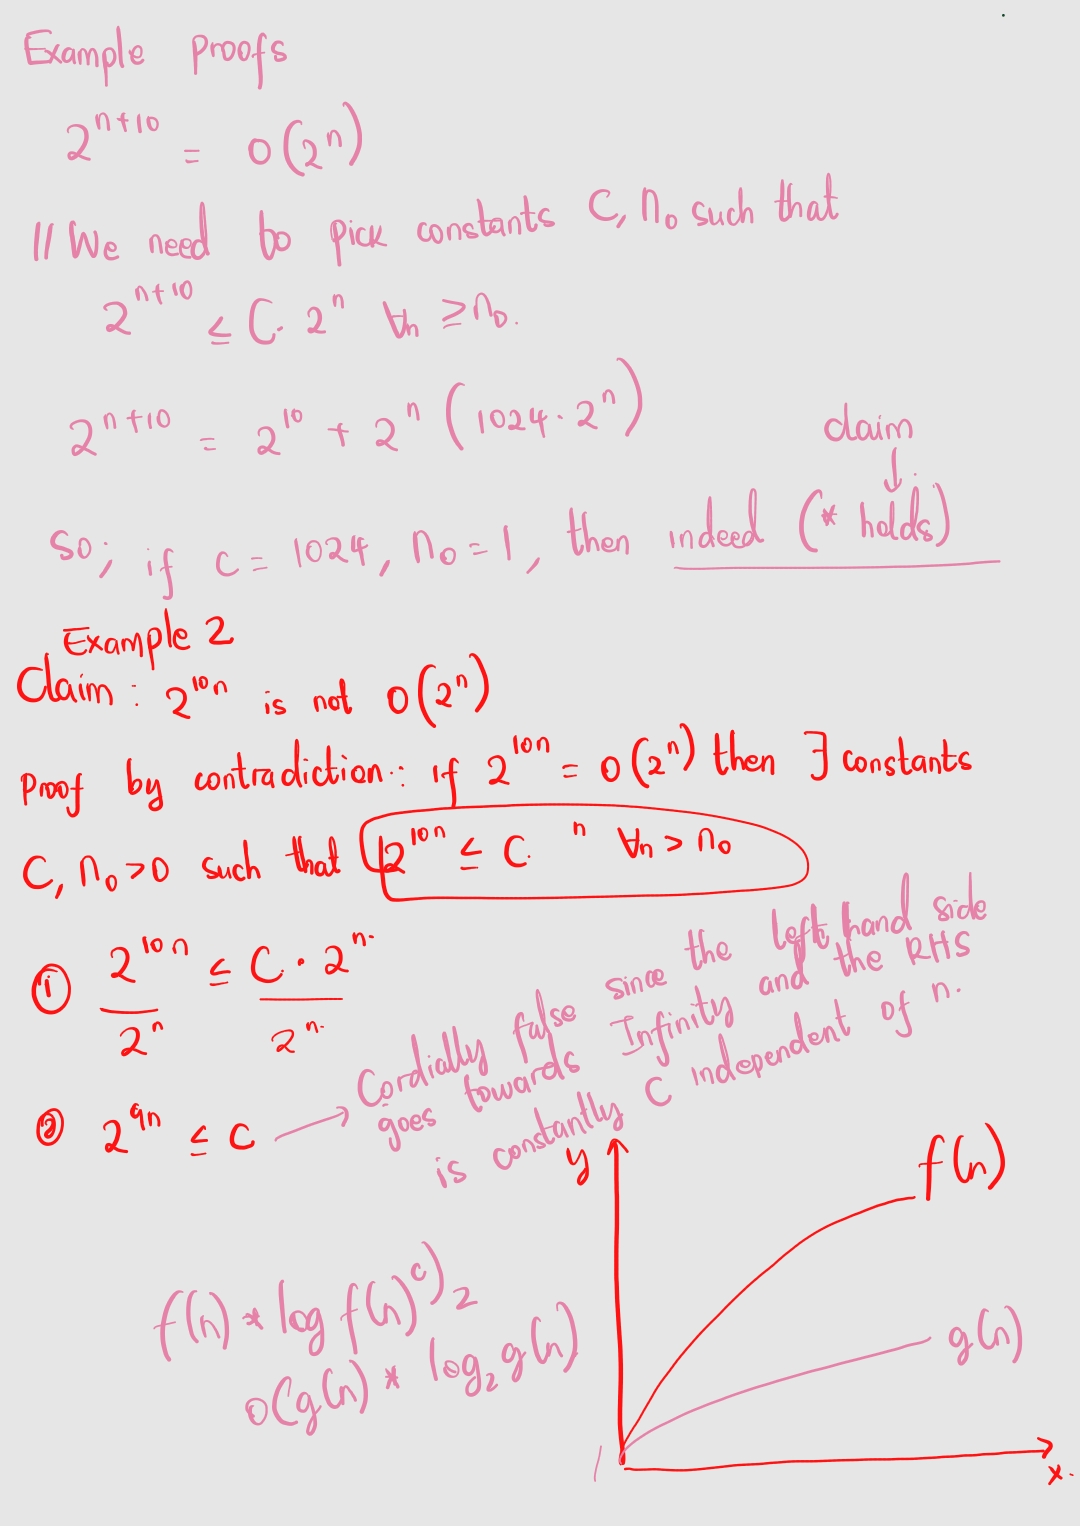 Example Proofs
2^{n+10} = O(2^n)
// We need to pick constants C, n₀ such that
2^{n+10} ≤ C. 2^n ∀n ≥ n₀.
2^{n+10} = 2^{10} + 2^n (1024 · 2^n)
claim
↓
So; if c = 1024, n₀ = 1, then indeed (* holds)
Example 2
Claim : 2^{10n} is not O(2^n)
Proof by contradiction: if 2^{10n} = O(2^n) then ∃ constants
C, n₀ > 0 such that 2^{10n} ≤ C. ^n ∀n > n₀
① 2^{10n} / 2^n ≤ C · 2^n. / 2^n.
② 2^{9n} ≤ C →
Cordially false since the left hand side
goes towards Infinity and the RHS
is constantly C independent of n.
y
f(n)
f(n) * log f(n)^c)₂
O(g(n) * log₂ g(n)
g(n)
x.